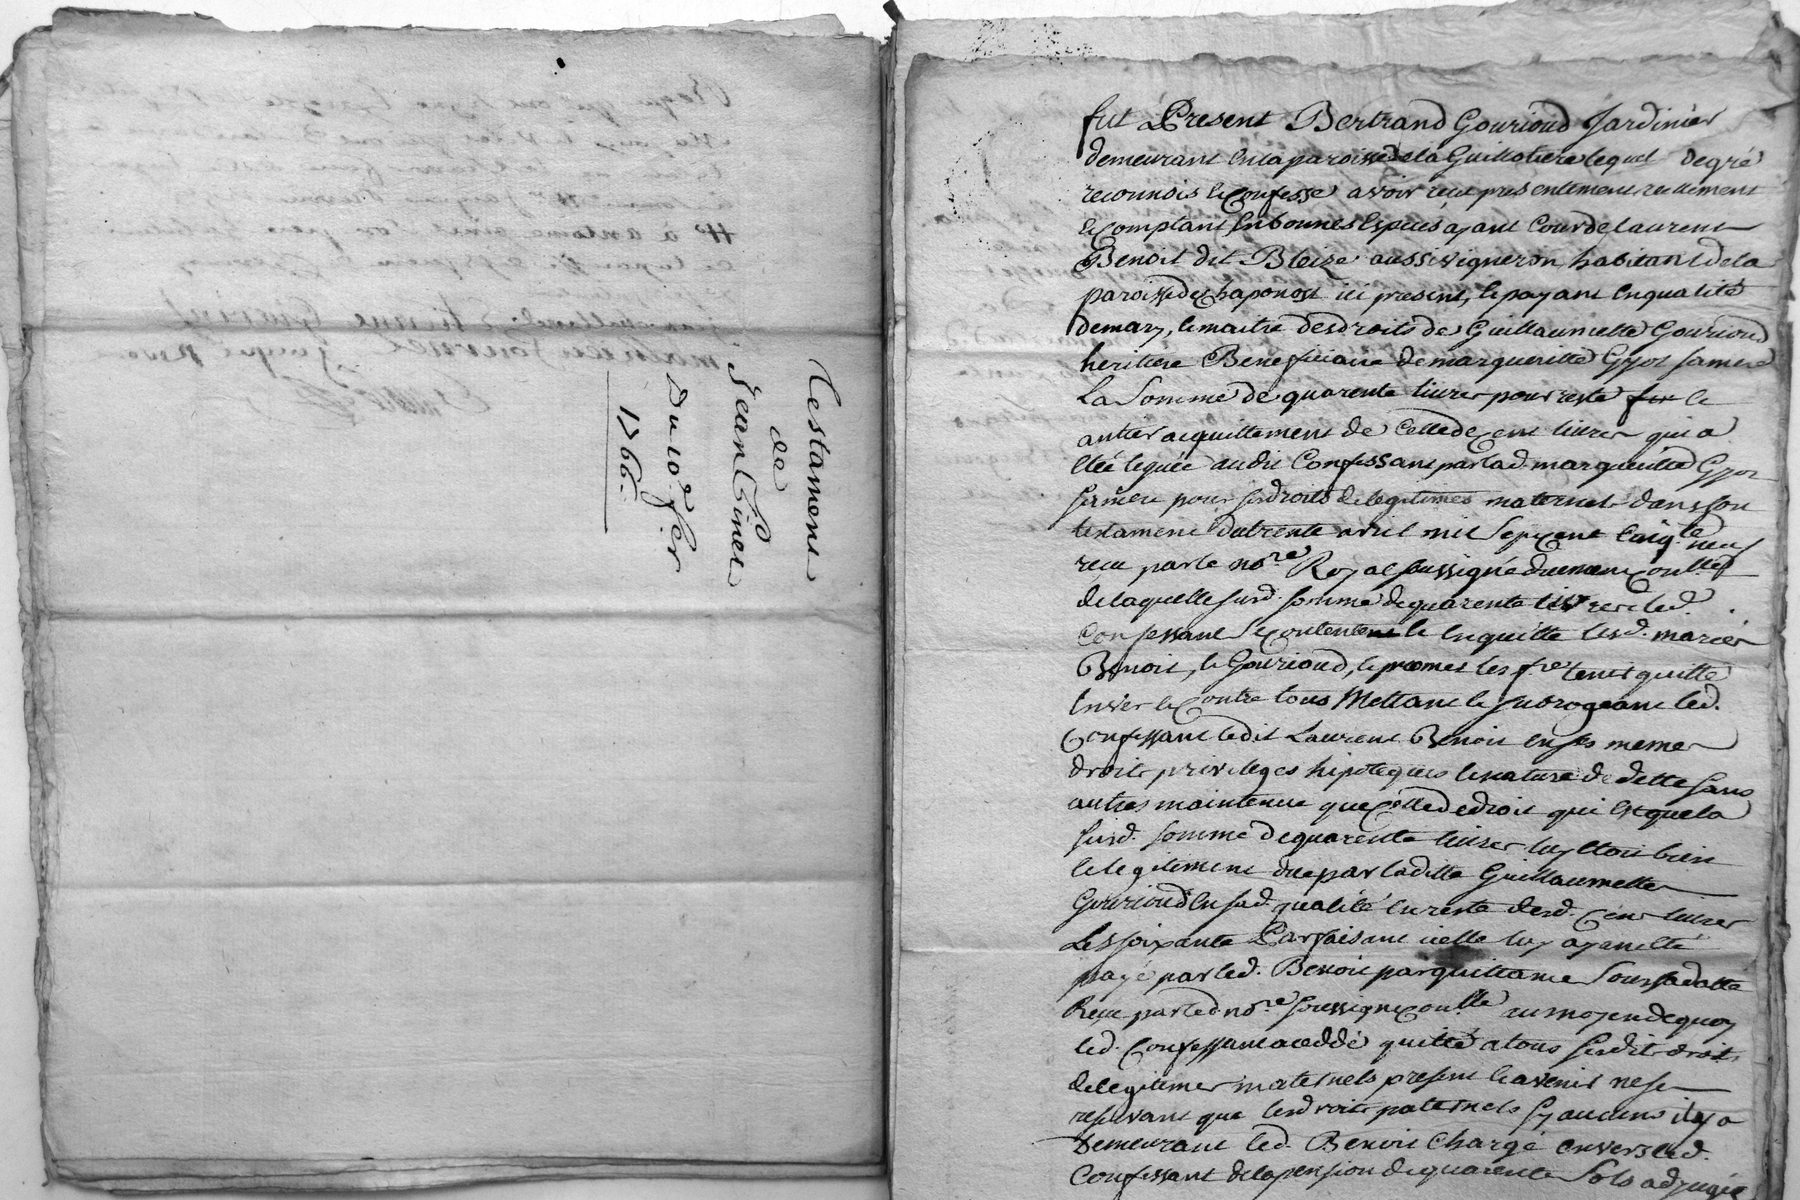 Testament
de
Jean Pinet
Du 10e. fer
1766.
fut Present Bertrand Gourioud Jardinier
demeurant en la paroisse de la Guillotiere lequel de gré
reconnois & Confesse avoir reçu presentement reellement
& Comptant En bonnes Especes ayant Cour de Laurent
Benoit dit Bleize aussi vigneron habitant de la
paroisse de Chaponost ici present, & payant En qualité
de mary, & maitre des droits de Guillaumette Gourioud
heritiere Beneficiaire de margueritte Gyot sa mere
La Somme de quarente livres pour reste & le
antier acquittement de Celle de Cent livres qui a
Eté leguée audit Confessant par lad. margueritte Gyot
sa mere pour ses droits de legitimes maternels dans son
testament du trente avril mil Sept Cent Cinqte neuf
reçu par le nore. Royal soussigné duement Conlled
de laquelle susd. somme de quarente livres led.
Confessant Se Contente & En quitte lesd. mariés
Benoit, & Gourioud, & promet les fre tenir quitte
Envers & Contre tous Mettant & subrogeant led.
Confessant ledit Laurent Benoit En ses memes
droits privileges hipoteques & nature de dette sans
autres maintenue que Celle de droit qui Est que la
susd. somme de quarente livres luy Etoit bien
& legitiment due par laditte Guillaumette
Gourioud En sad. qualité En reste desd. Cent livres
Les soixante Parfaisant icelle luy ayant Eté
payé par led. Benoit par quittance sous sa datte
Reçue par led. nore. soussigné Conlle au moyen de quoy
led. Confessant a cedde quitté a tous sesdits droits
de legitimes maternels present & avenir ne se
reservant que les droits paternels sy aucuns il y a
Demeurant led. Benoit Chargé envers led.
Confessant de la pension de quarente Sols adjugée